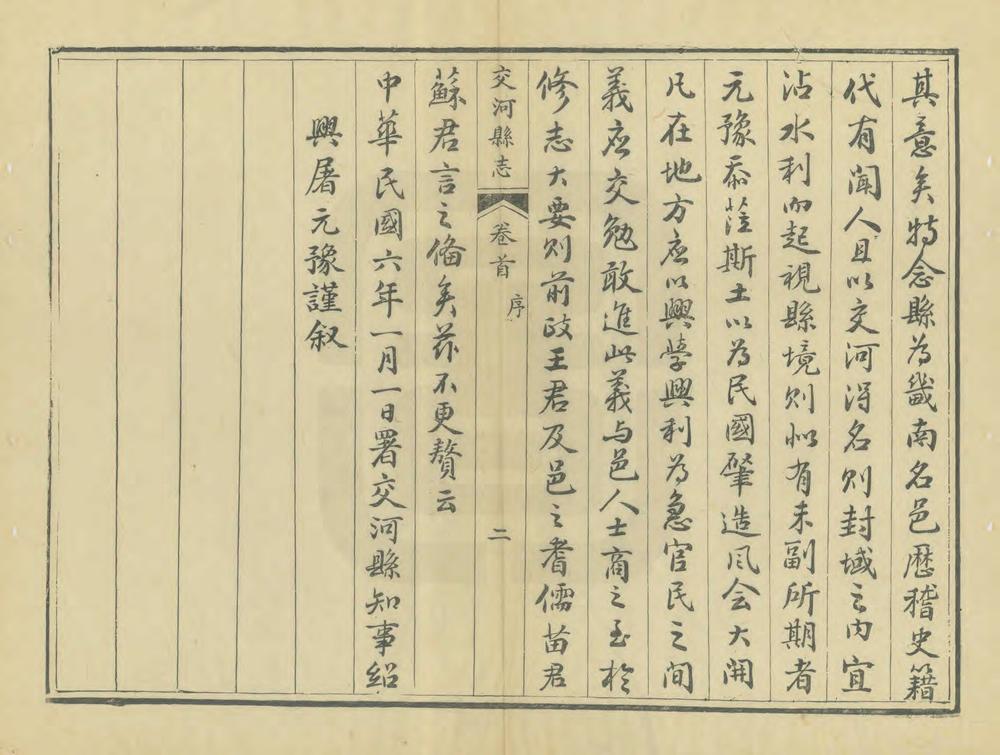 其意矣特念縣為畿南名邑歷稽史籍
代有聞人且以交河得名則封域之內宜
沾水利而起視縣境則似有未副所期者
元豫忝蒞斯土以為民國肇造風会大開
凡在地方应以興學興利為急官民之間
義应交勉敢進此義与邑人士商之至於
修志大要則前政王君及邑之耆儒苗君
交河縣志 卷首 序 二
蘇君言之俻矣茲不更贅云
中華民國六年一月一日署交河縣知事紹
興屠元豫謹叙